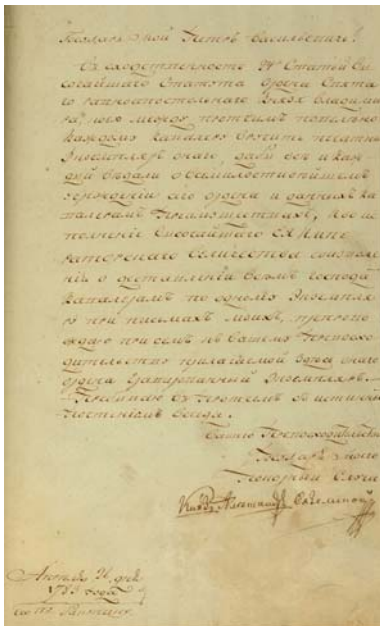 Государь мой Петръ Васильевичъ!
Въ сходственность
сочайшаго Статута Ордена Свята
го равноапостольнаго Князя Владими
ра, между протчимъ повелѣно
каждому кавалеру вручить печатны
Экземпляръ онаго, дабы всѣ и каж
дый вѣдали о всемилостивѣйшемъ
учрежденіи сего ордена и данныхъ ка
валерамъ преимуществахъ, во ис
полненіе высочайшаго ЕЯ Импе
раторскаго Величества соизволе
нія о доставленіи всѣмъ господа
кавалерамъ по одному Экземпля
ру при письмахъ моихъ, препрово
ждаю при семъ къ Вашему Превосхо
дительству прилагаемой здѣсь онаго
ордена Экземпляръ.
Пребываю въ протчемъ съ истинны
почтеніемъ всегда.
Вашего Превосходительства
Государя моего
покорный слуга
Князь Александръ Вяземской
дня
1785 года